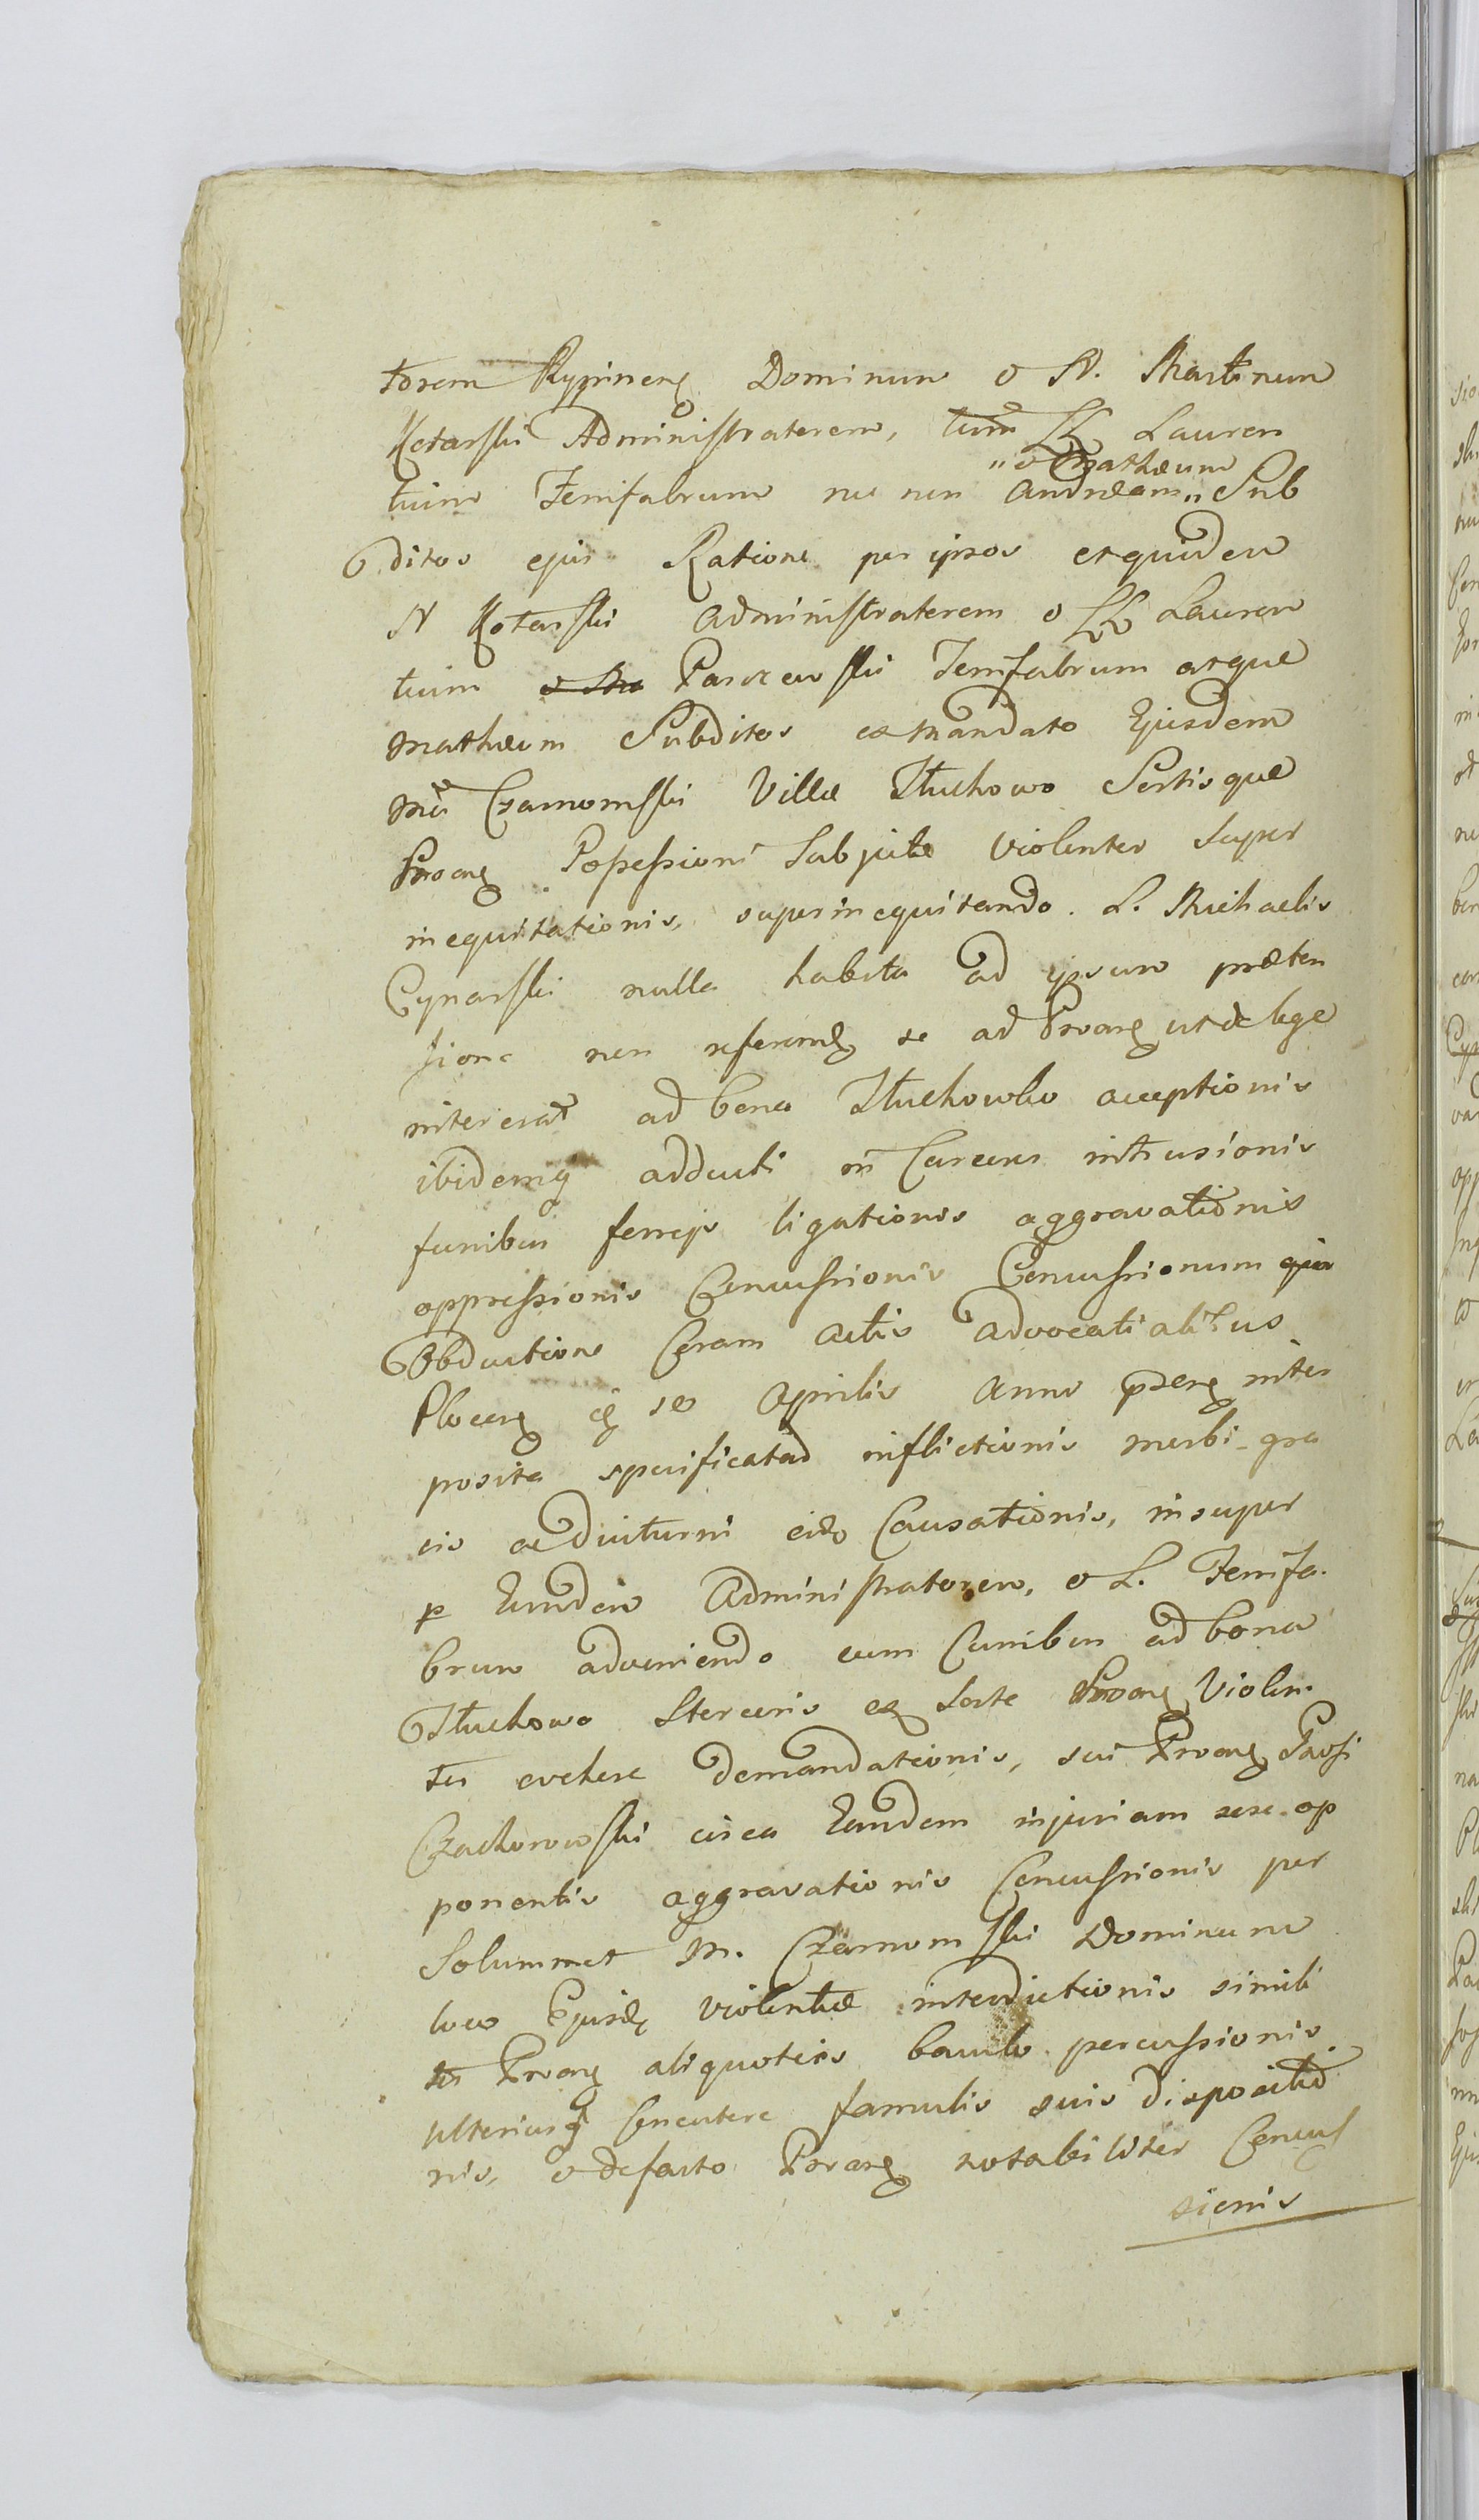 torem Rypinens Dominum & N. Martinum
Kotarski Administratorem, tum LL Lauren
"& Mathæum
tium Ferrifabrum nec non Andream" Sub
ditos ejus Ratione per ipsos etquidem
N Kotarski Administratorem & LL Lauren
tium Ferrifabrum atque
Mathæum Subditos ex Mandato Ejusdem
Mci Czarnomski Villæ Tłuchowo Sortisque
Possessioni Subjectæ Violenter Super
inequitationis, superinequitando. L. Michaelis
Cynarski nulla habita ad ipsum præten
sione non referend se ad ut de lege
intererat ad bona Tłuchowko acceptionis
ibidemq adducti in Carceres intrusionis
funibus ferreis ligationis aggravationis
oppressionis Concussionis Concussionum qua
Obductione Coram Actis Advocatialibus
Plocens Aprilis Anno præsen inter
posita specificatad inflictionis morbi gra
vis ac diuturni Causationis, insuper
p Eundem Administratorem, & L. Ferrifa
brum adveniendo cum Curribus ad bona
Tłuchowo Stercoris ex Sorte Violen
ter evehere demandationis, sui
Czachorowski circa Eandem injuriam sese op
ponentis aggravationis Concussionis per
Solummet M. Czarnomski Dominum
loco Ejusd violentiæ interdictionis simili
ter aliquoties baculo percussionis
ulteriusq Concutere famulis suis dispositio
nis, & de facto notabiliter Concus
sionis